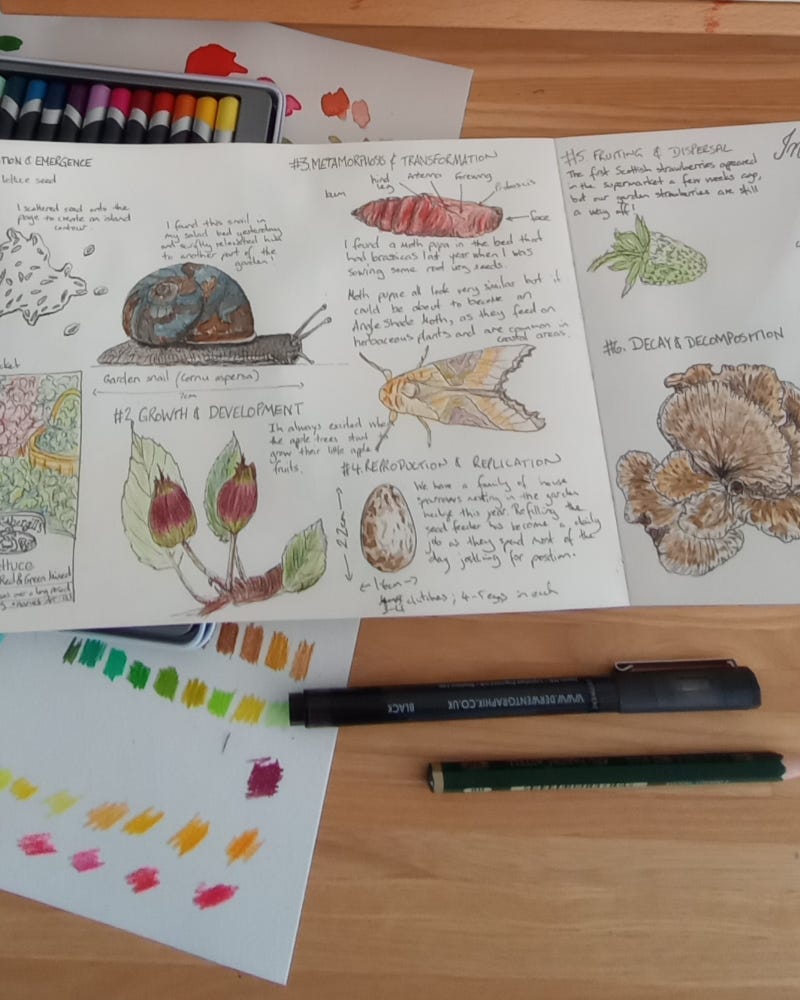 TION & EMERGENCE
lettuce seed
I scattered seed onto the
page to create an island
contour.
I found this snail in
my salad bed yesterday
and swiftly relocated him
to another part of the
garden!
Garden snail (Cornu aspersa)
#2 GROWTH & DEVELOPMENT
I'm always excited when
the apple trees start to
grow their little apple
fruits.
cket
ettuce
Red & Green Mixed
#3. METAMORPHOSIS & TRANSFORMATION
bum
hind
leg
Antenna
Forewing
Proboscis
face
I found a Moth pupa in the bed that
had brassicas last year when I was
sowing some root veg seeds.
Moth pupae all look very similar but it
could be about to become an
Angle Shade Moth, as they feed on
herbaceous plants and are common in
coastal areas.
#4. REPRODUCTION & REPLICATION
We have a family of house
sparrows nesting in the garden
hedge this year. Refilling the
seed feeder has become a daily
job as they spend most of the
day jostling for position.
clutches; 4-5 eggs in each
#5 FRUITING & DISPERSAL
The first Scottish strawberries appeared
in the supermarket a few weeks ago,
but our garden strawberries are still
a way off!
#6. DECAY & DECOMPOSITION
In
WWW.DERWENTGRAPHIK.CO.UK
BLACK